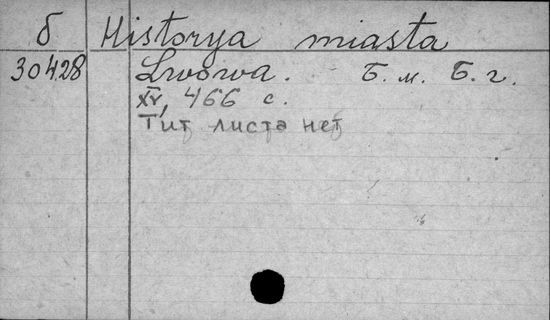 б Historya miasta
30428 Lwowa. Б. м. Б. г.
XV, 466 с.
Тит листа нет